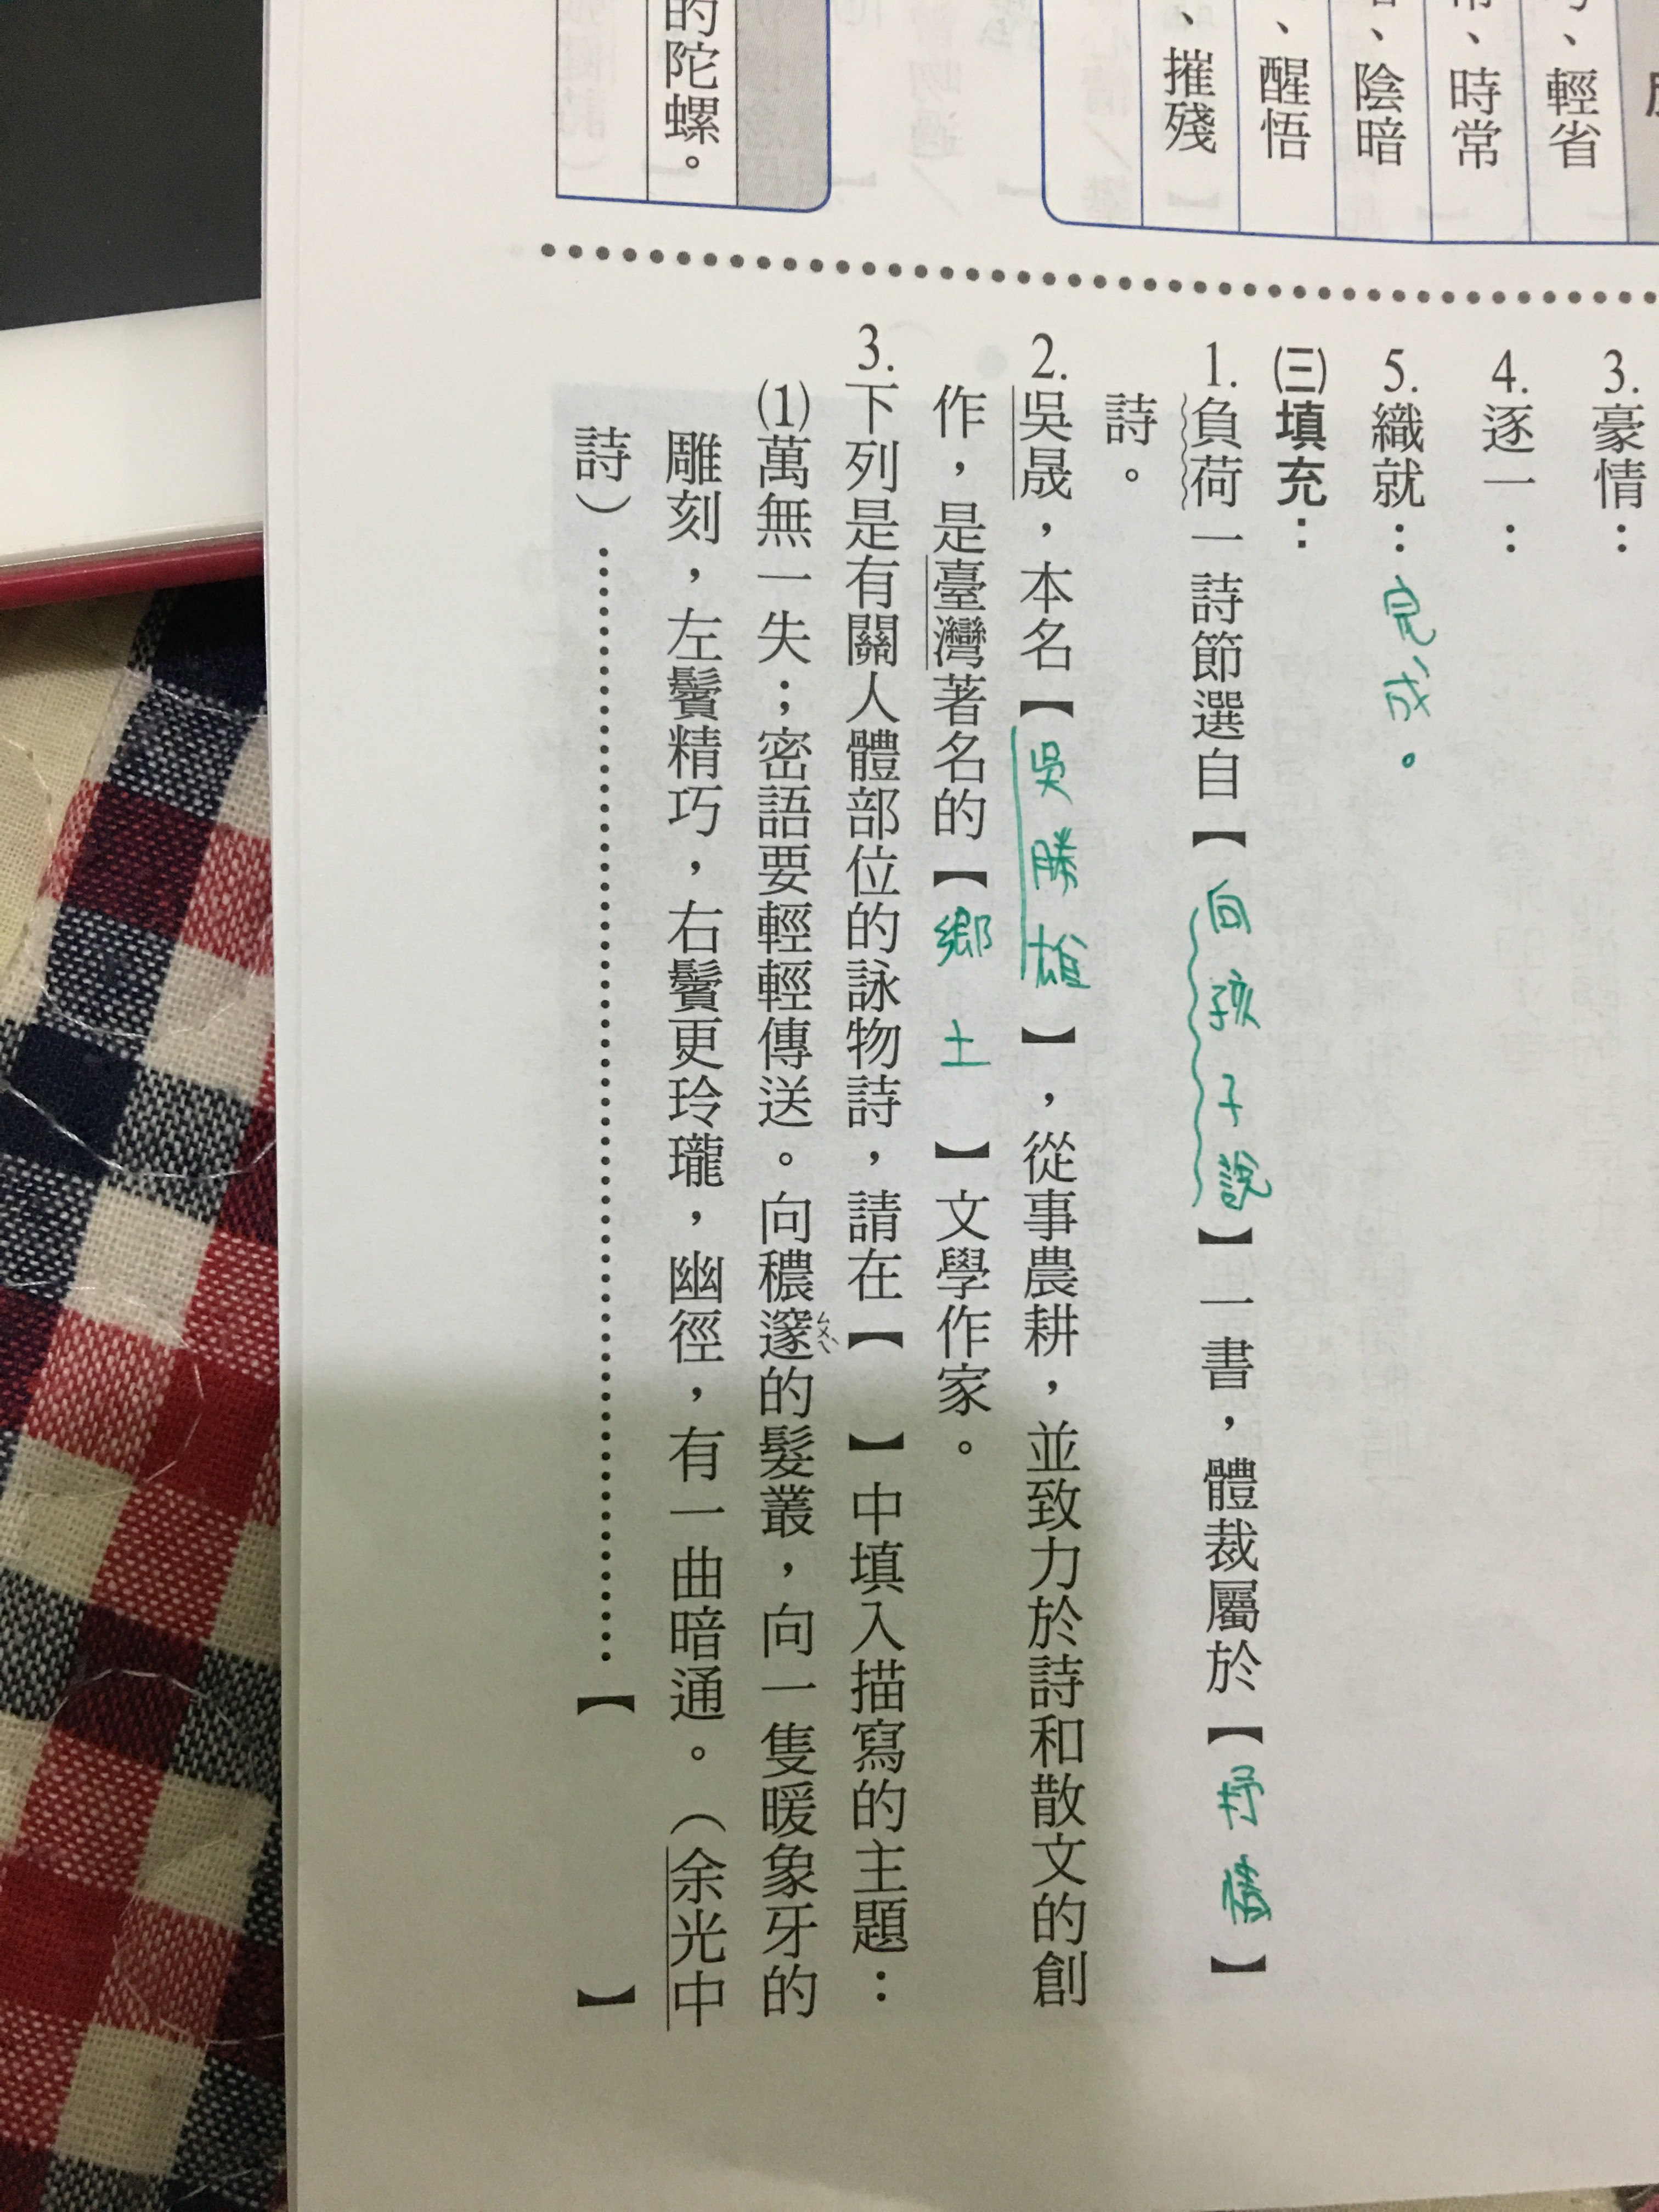 、輕省
、時常
、陰暗
、醒悟
、摧殘
的陀螺。
3.豪情：
4.逐一：
5.織就：完成。
㈢填充：
1.負荷一詩節選自【向孩子說】一書，體裁屬於【抒情】
詩。
2.吳晟，本名【吳勝雄】，從事農耕，並致力於詩和散文的創
作，是臺灣著名的【鄉土】文學作家。
3.下列是有關人體部位的詠物詩，請在【　】中填入描寫的主題：
⑴萬無一失；密語要輕輕傳送。向穠邃ㄙㄨㄟˋ的髮叢，向一隻暖象牙的
雕刻，左鬢精巧，右鬢更玲瓏，幽徑，有一曲暗通。（余光中
詩）……………………………………………【　　　】